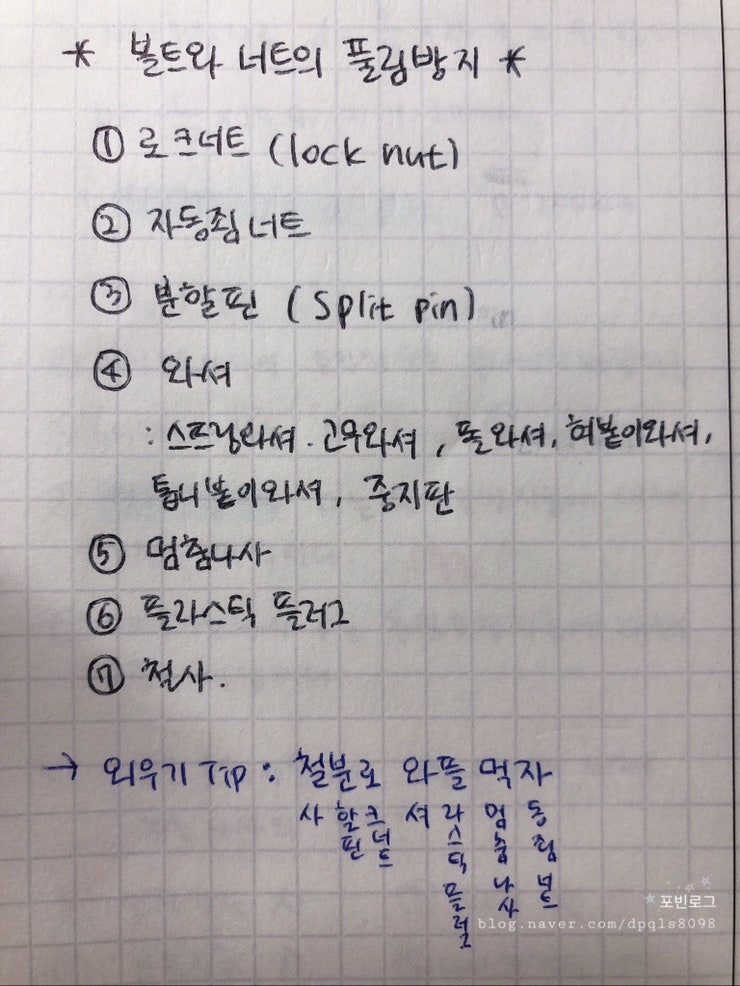 * 볼트와 너트의 풀림방지 *
① 로크너트 (lock nut)
② 자동죔너트
③ 분할핀 (Split pin)
④ 와셔
: 스프링와셔. 고무와셔, 폴와셔, 혀붙이와셔,
톱니붙이와셔, 중지판
⑤ 멈춤나사
⑥ 플라스틱 플러그
⑦ 철사.
→ 외우기 Tip : 철분로 와플 먹자
사 할핀 크너트 셔 라스틱 플러그 멈춤나사 동죔너트
포빈로그
blog.naver.com/dpqls8098